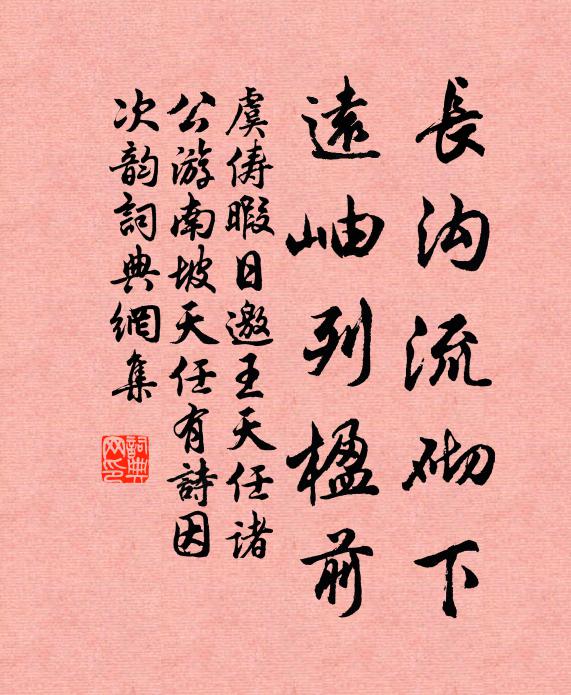 長沟流砌下
遠岫列楹前
虞俦暇日邀王天任诸
公游南坡天任有詩因
次韵詞典網集
詞典网印